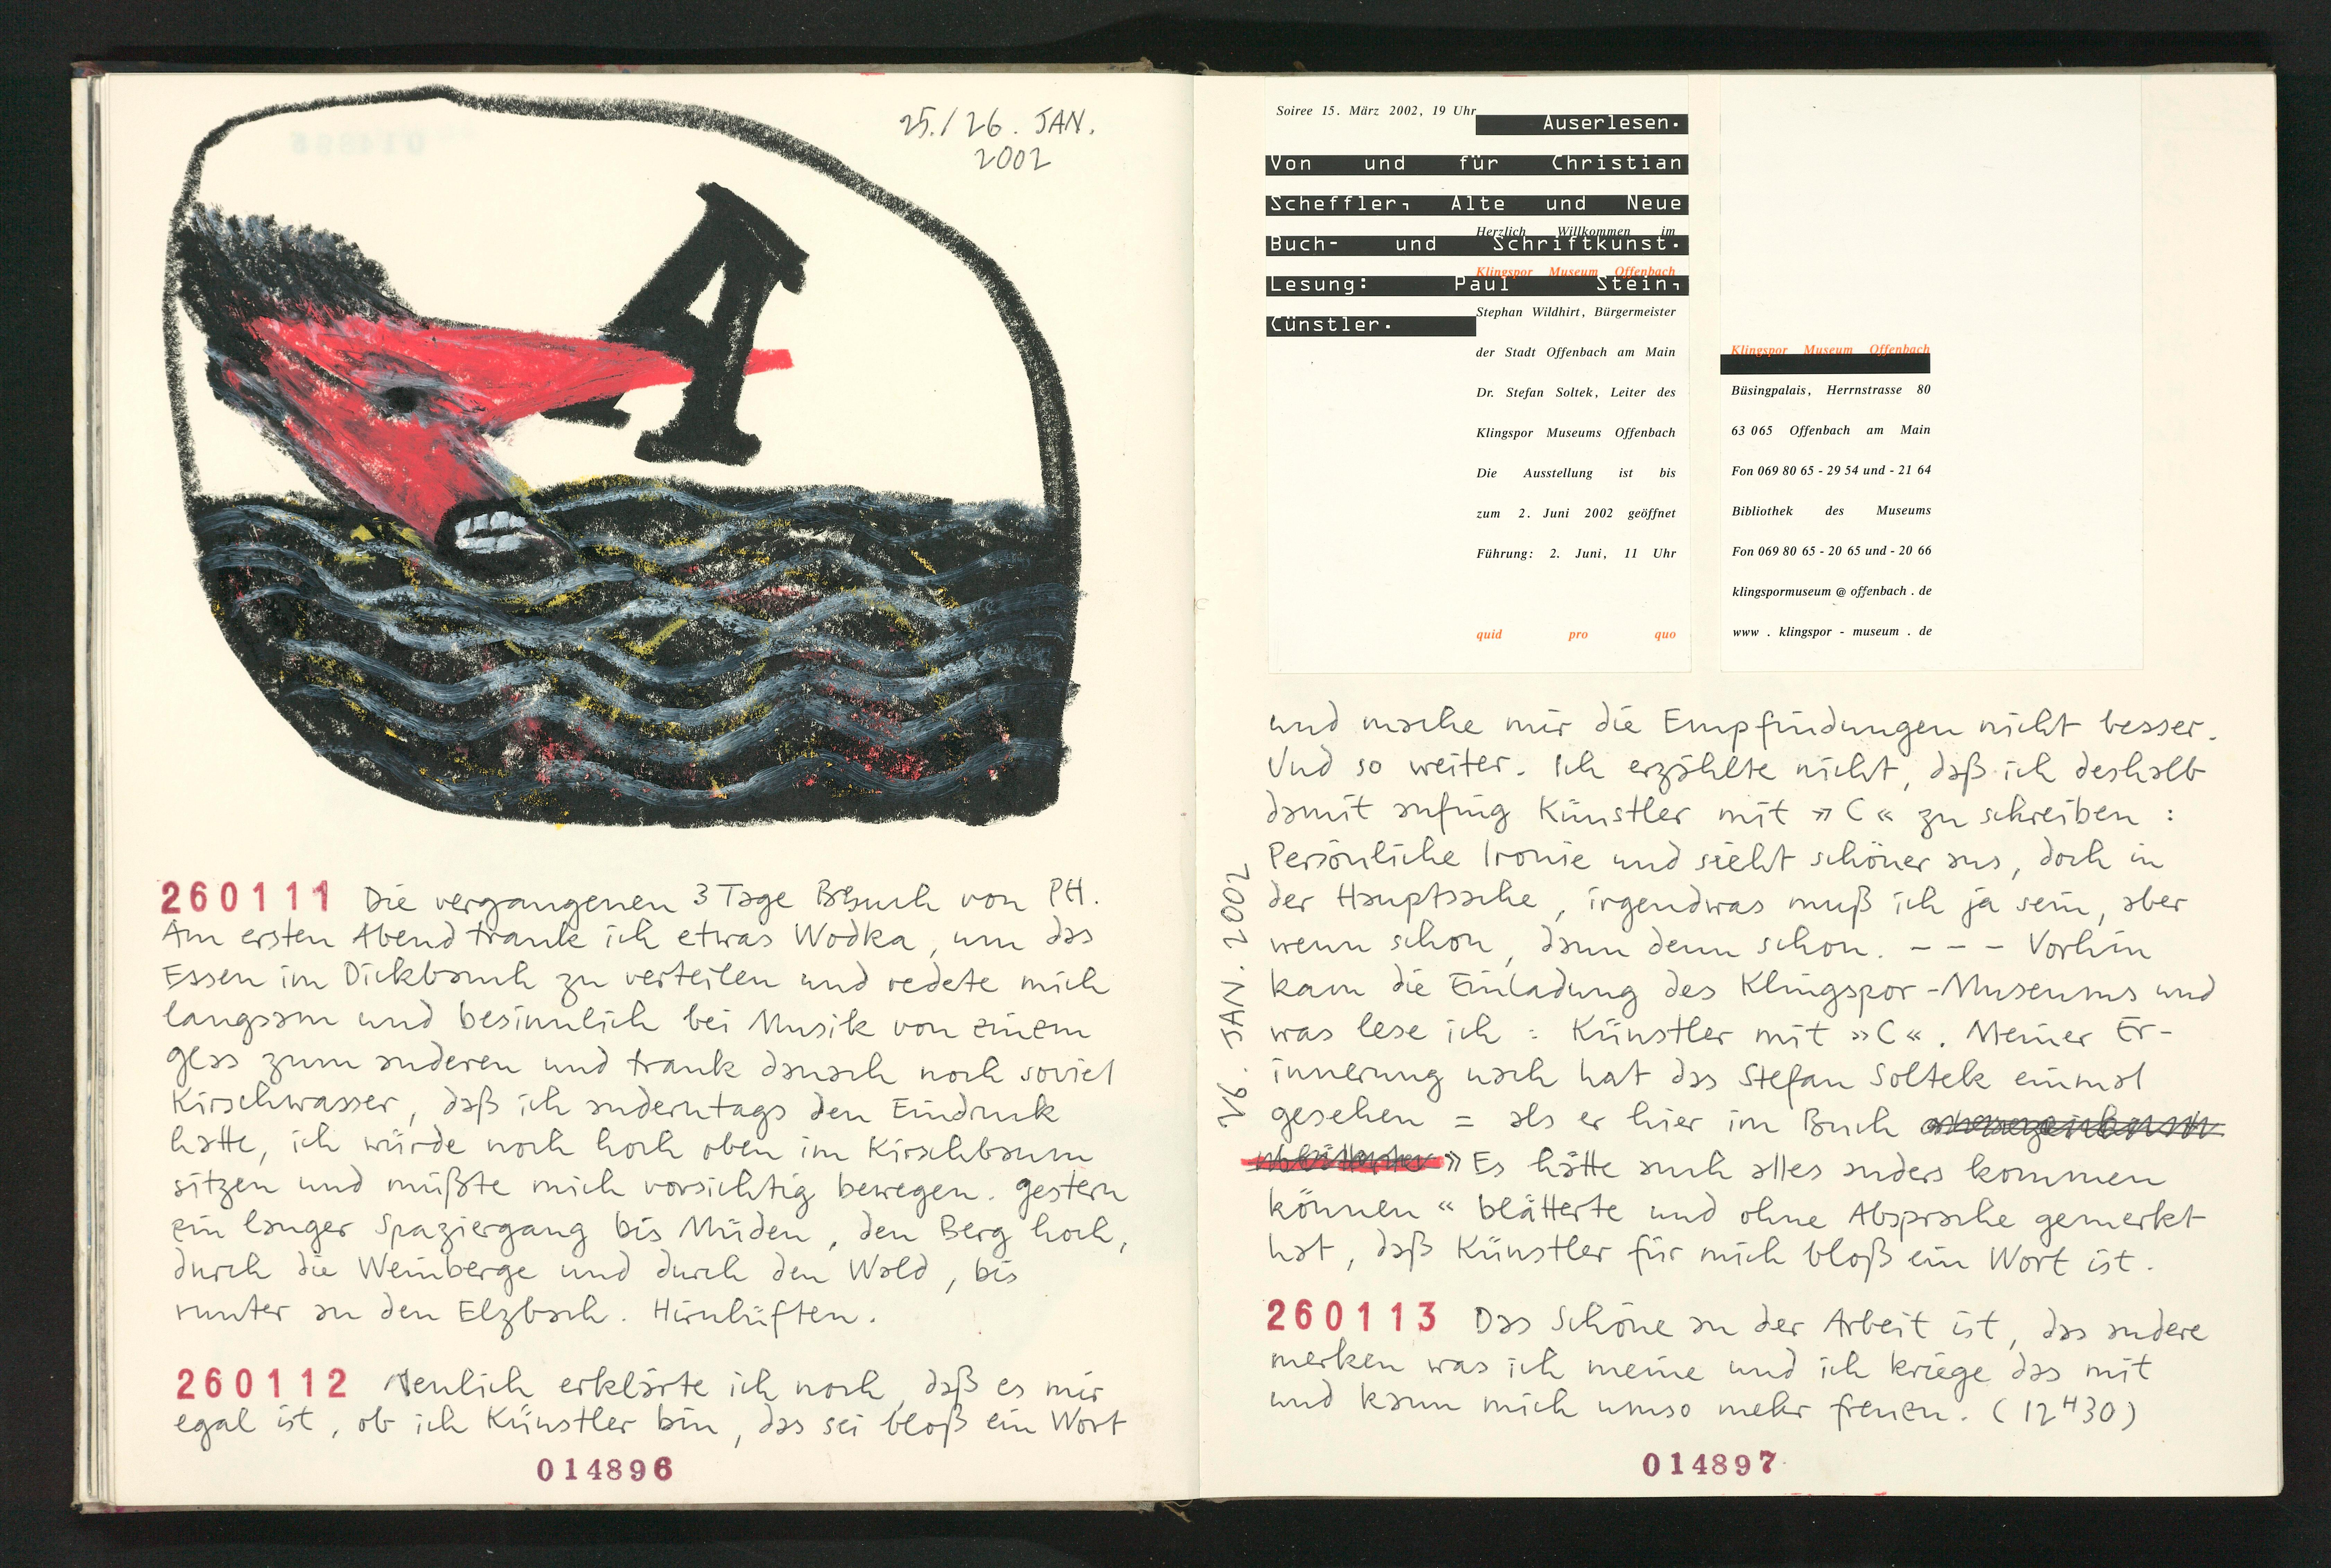 25./26. JAN.
2002
260111 Die vergangenen 3 Tage Besuch von PH.
Am ersten Abend trank ich etwas Wodka, um das
Essen im Dickbauch zu verteilen und redete mich
langsam und besinnlich bei Musik von einem
glas zum anderen und trank danach noch soviel
Kirschwasser, daß ich anderntags den Eindruck
hatte, ich würde noch hoch oben im Kirschbaum
sitzen und müßte mich vorsichtig bewegen. gestern
ein langer Spaziergang bis Müden, den Berg hoch,
durch die Weinberge und durch den Wald, bis
runter an den Elzbach. Hirnlüften.
260112 Neulich erklärte ich noch, daß es mir
egal ist, ob ich Künstler bin, das sei bloß ein Wort
014896
Soiree 15. März 2002, 19 Uhr
Auserlesen.
Von und für Christian
Scheffler, Alte und Neue
Buch- und Schriftkunst.
Lesung: Paul Stein,
Cünstler.
Herzlich Willkommen im
Klingspor Museum Offenbach
Stephan Wildhirt, Bürgermeister
der Stadt Offenbach am Main
Dr. Stefan Soltek, Leiter des
Klingspor Museums Offenbach
Die Ausstellung ist bis
zum 2. Juni 2002 geöffnet
Führung: 2. Juni, 11 Uhr
quid pro quo
Klingspor Museum Offenbach
Büsingpalais, Herrnstrasse 80
63 065 Offenbach am Main
Fon 069 80 65 - 29 54 und - 21 64
Bibliothek des Museums
Fon 069 80 65 - 20 65 und - 20 66
klingspormuseum @ offenbach . de
www . klingspor - museum . de
26. JAN. 2002
und mache mir die Empfindungen nicht besser.
Und so weiter. Ich erzählte nicht, daß ich deshalb
damit anfing Künstler mit »C« zu schreiben :
Persönliche Ironie und sieht schöner aus, doch in
der Hauptsache, irgendwas muß ich ja sein, aber
wenn schon, dann denn schon. - - - Vorhin
kam die Einladung des Klingspor-Museums und
was lese ich : Künstler mit »C«. Meiner Er-
innerung nach hat das Stefan Soltek einmal
gesehen = als er hier im Buch
»Es hätte auch alles anders kommen
können« blätterte und ohne Absprache gemerkt
hat, daß Künstler für mich bloß ein Wort ist.
260113 Das Schöne an der Arbeit ist, das andere
merken was ich meine und ich kriege das mit
und kann mich umso mehr freuen. (12H30)
014897